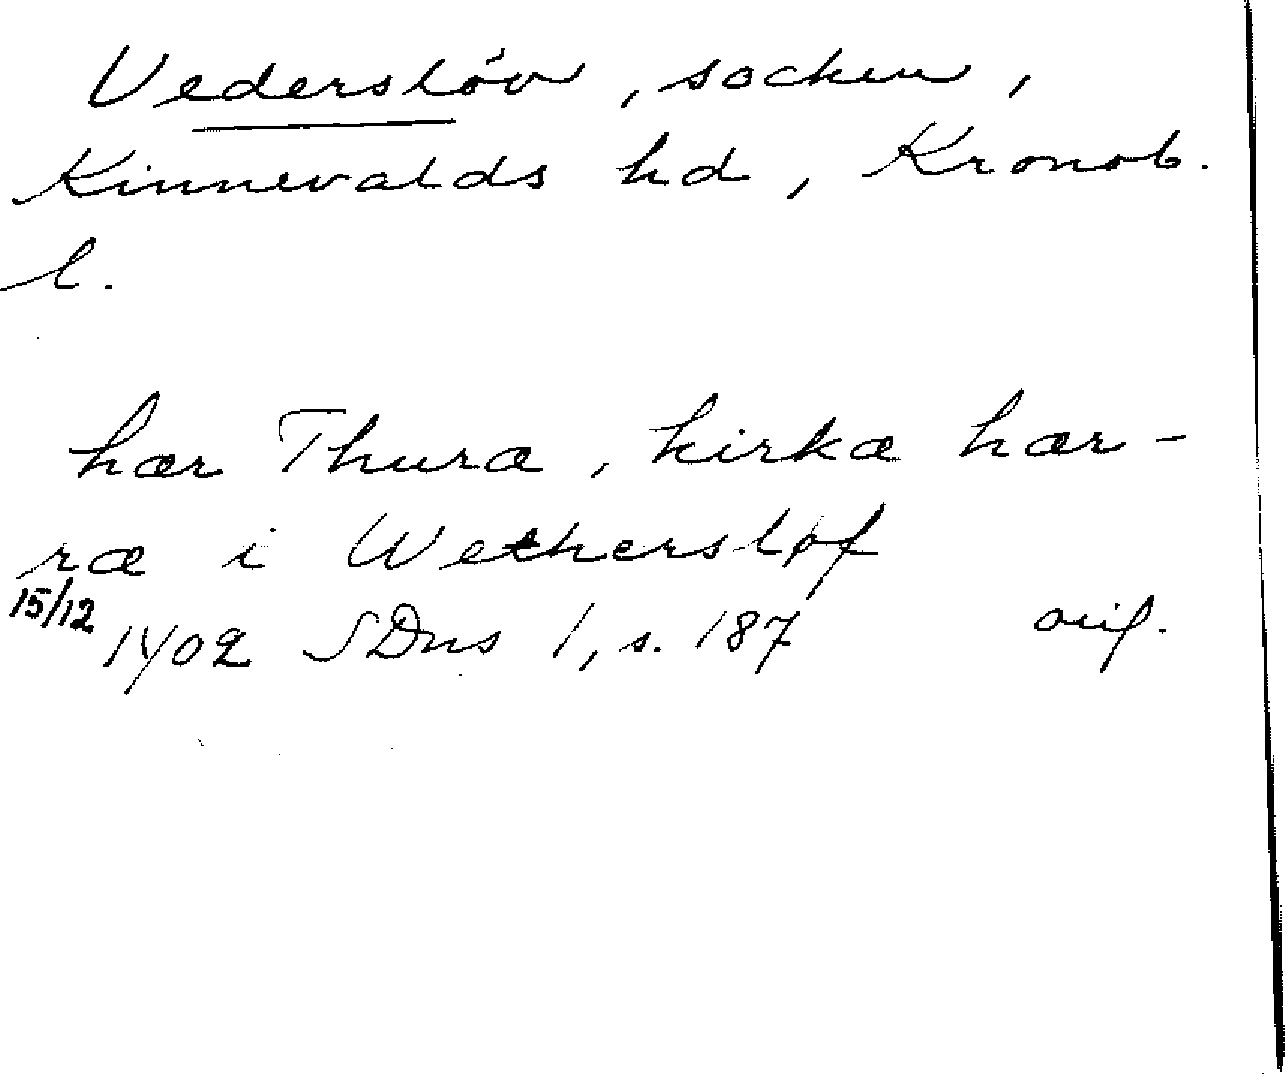 Vederslöv, socken,
Kinnevalds hd, Kronob.
l.
hær Thuræ, kirkæ hær-
ræ i Wethersløf
15/12 1402 SDns 1, s. 187 orig.